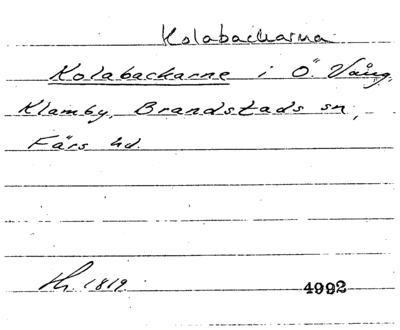 Kolabackarna
Kolabackarne i Ö. Vång,
Klamby, Brandstads sn,
Färs hd.
1819. 4992